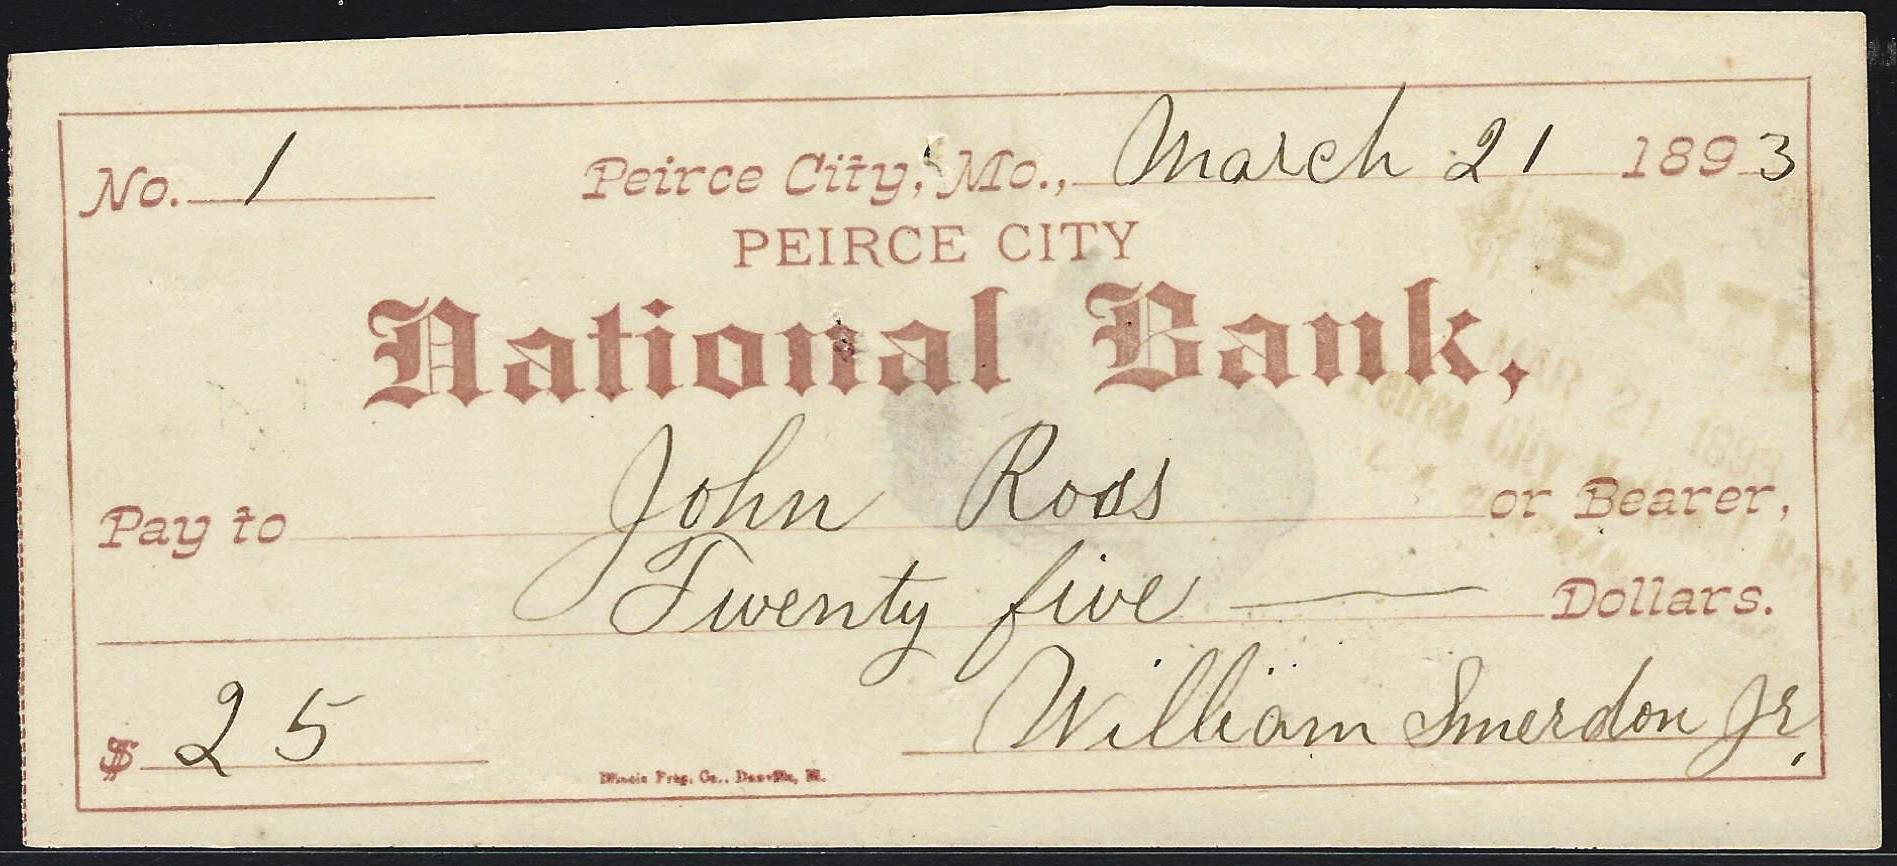 No. 1 Peirce City, Mo., March 21 1893
PEIRCE CITY
National Bank,
PAID
MAR 21 1893
Peirce City National Bank
Pay to John Ross or Bearer,
Twenty five Dollars.
$ 25 William Smerdon Jr.
Illinois Prtg. Co., Danville, Ill.